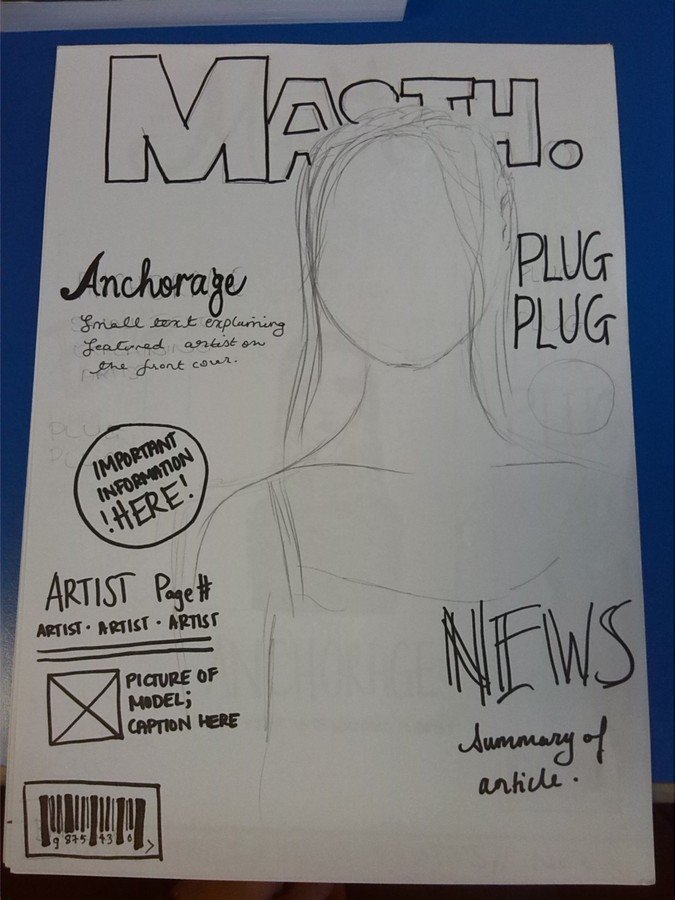 MASTH.
Anchorage
Small text explaining
featured artist on
the front cover.
PLUG
PLUG
IMPORTANT
INFORMATION
!HERE!
ARTIST Page#
ARTIST · ARTIST · ARTIST
PICTURE OF
MODEL;
CAPTION HERE
NEWS
Summary of
article.
9 875 43 6 >